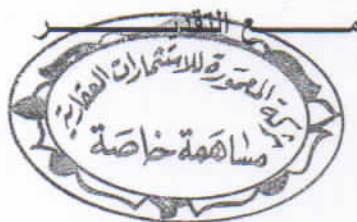 مع التقدير
شركة المعمورة للاستثمارات العقارية
مساهمة خاصة